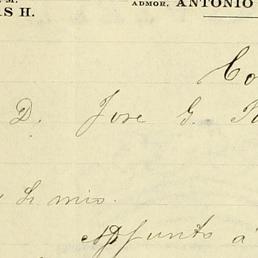 S H.
ADMOR. ANTONIO
Co
D. Jose G.
mio.
Adjunto á